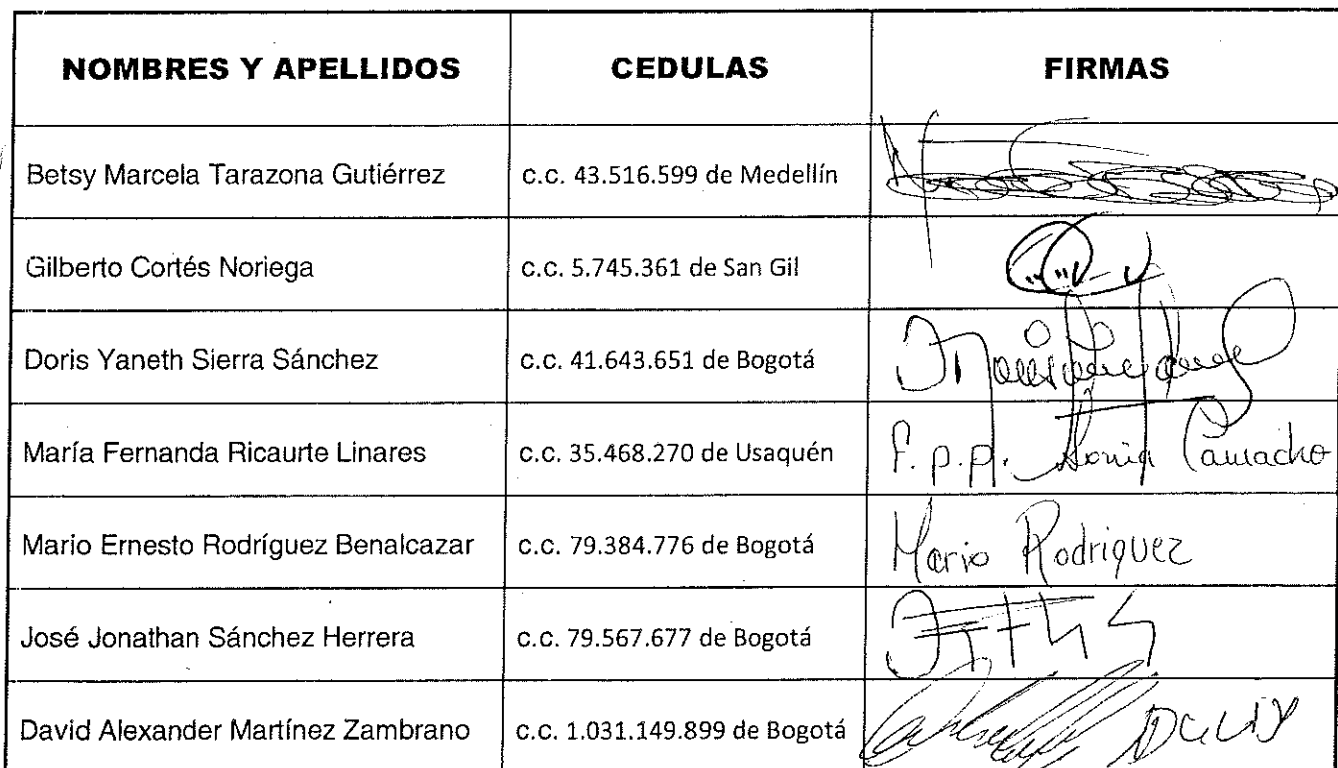 NOMBRES Y APELLIDOS CEDULAS FIRMAS
Betsy Marcela Tarazona Gutiérrez c.c. 43.516.599 de Medellín
Gilberto Cortés Noriega c.c. 5.745.361 de San Gil
Doris Yaneth Sierra Sánchez c.c. 41.643.651 de Bogotá
María Fernanda Ricaurte Linares c.c. 35.468.270 de Usaquén F.p.p. Sonia Camacho
Mario Ernesto Rodríguez Benalcazar c.c. 79.384.776 de Bogotá Mario Rodriguez
José Jonathan Sánchez Herrera c.c. 79.567.677 de Bogotá
David Alexander Martínez Zambrano c.c. 1.031.149.899 de Bogotá